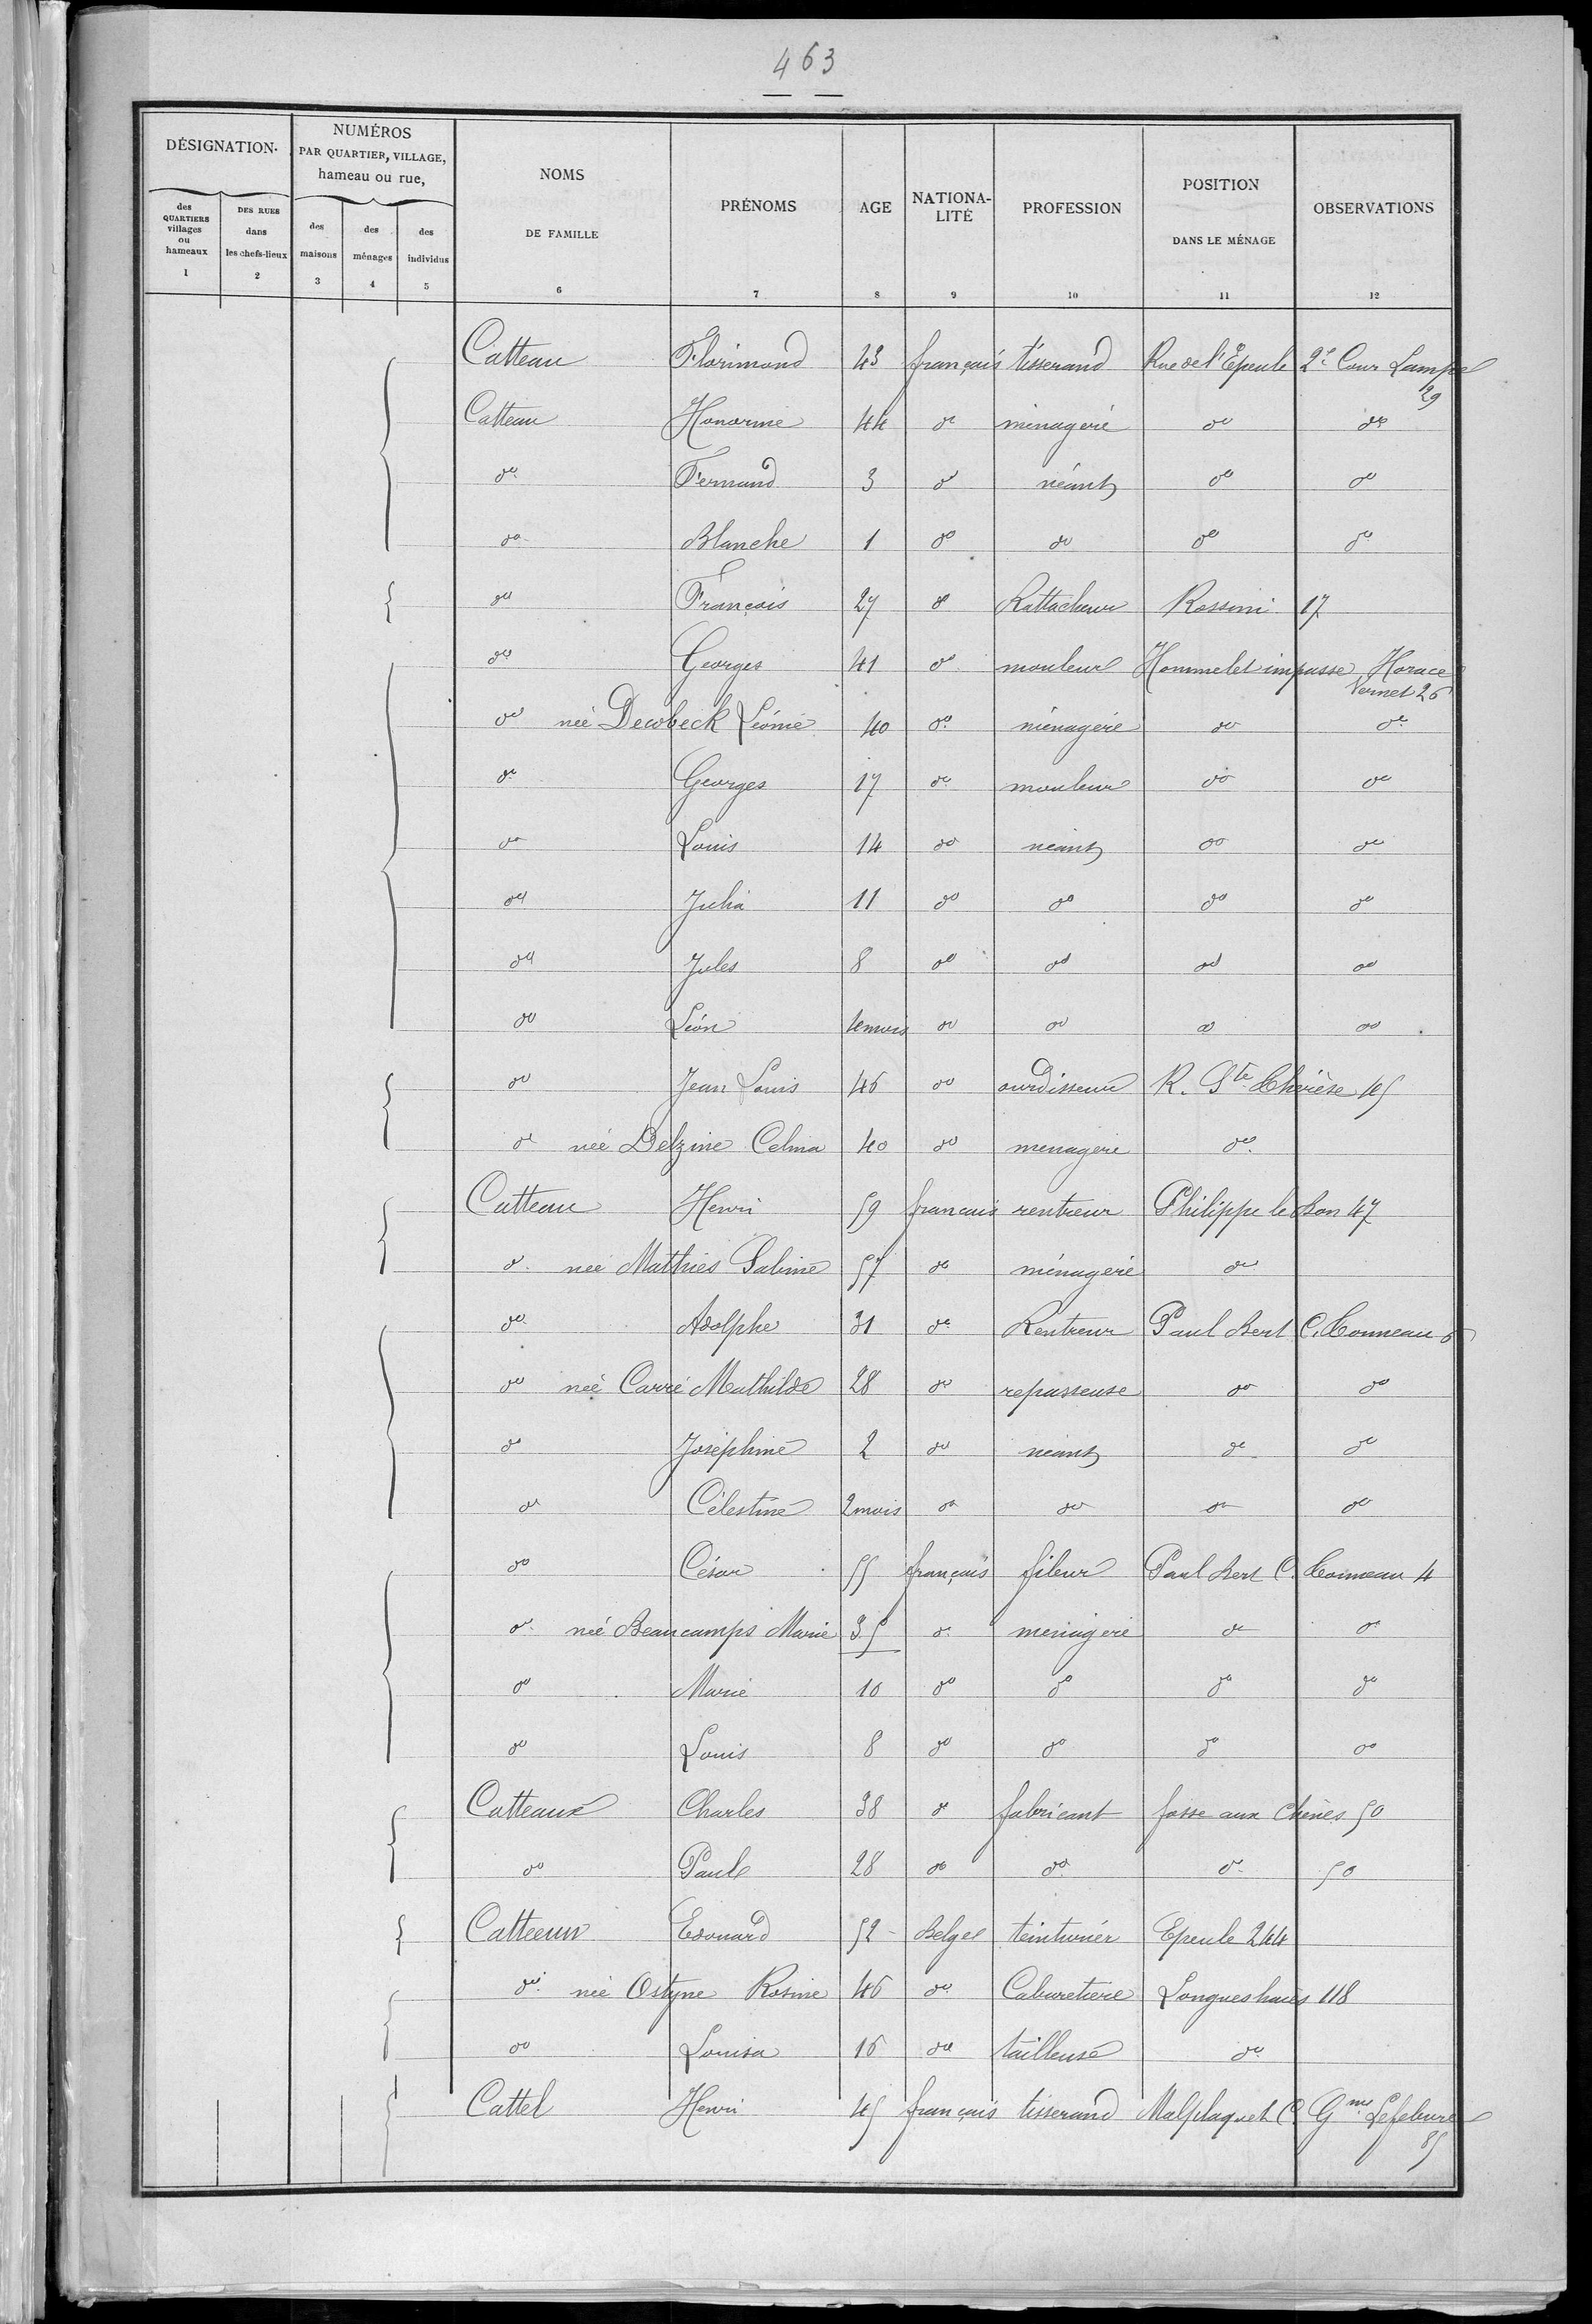 463
DÉSIGNATION.
NUMÉROS
PAR QUARTIER, VILLAGE,
hameau ou rue,
NOMS
DE FAMILLE
PRÉNOMS
AGE
NATIONA-
LITÉ
PROFESSION
POSITION
DANS LE MÉNAGE
OBSERVATIONS
des
QUARTIERS
villages
ou
hameaux
DES RUES
dans
les chefs-lieux
des
maisons
des
ménages
des
individus
1 2 3 4 5 6 7 8 9 10 11 12
Catteau Florimond 43 français tisserand Rue de l'Epeule 2e Cour Lampe
29
Catteau Honorine 44 do ménagère do do
do Fernand 3 do néant do do
do Blanche 1 do do do do
do François 27 do Rattacheur Rossini 17
do Georges 41 do mouleur Hommelet impasse Horace
Vernet 26
do née Dewbeck Léonie 40 do ménagère do do
do Georges 17 do mouleur do do
do Louis 14 do néant do do
do Julia 11 do do do do
do Jules 8 do do do do
do Léon 4 mois do do do do
do Jean Louis 46 do ourdisseur R. Ste Thérèse 45
do née Delzine Celina 40 do menagère do
Catteau Henri 59 francais rentreur Philippe le Bon 47
do née Mathies Sabine 57 do ménagère do
do Adolphe 31 do Rentreur Paul Bert C. Conneau 6
do née Carré Mathilde 28 do repasseuse do do
do Joséphine 2 do néant do do
do Célestine 2 mois do do do do
do César 55 français fileur Paul Bert C. Conneau 4
do née Beaucamps Marie 35 do menagère do do
do Marie 10 do do do do
do Louis 8 do do do do
Catteaux Charles 38 do fabricant fosse aux Chênes 50
do Paul 28 do do do 50
Catteeuw Edouard 52 Belge teinturier Epeule 244
do née Ostyne Rosine 46 do Cabaretière Longues haies 118
do Louisa 16 do tailleuse do
Cattel Henri 45 français tisserand Malplaquet C. Gme Lefebvre
85